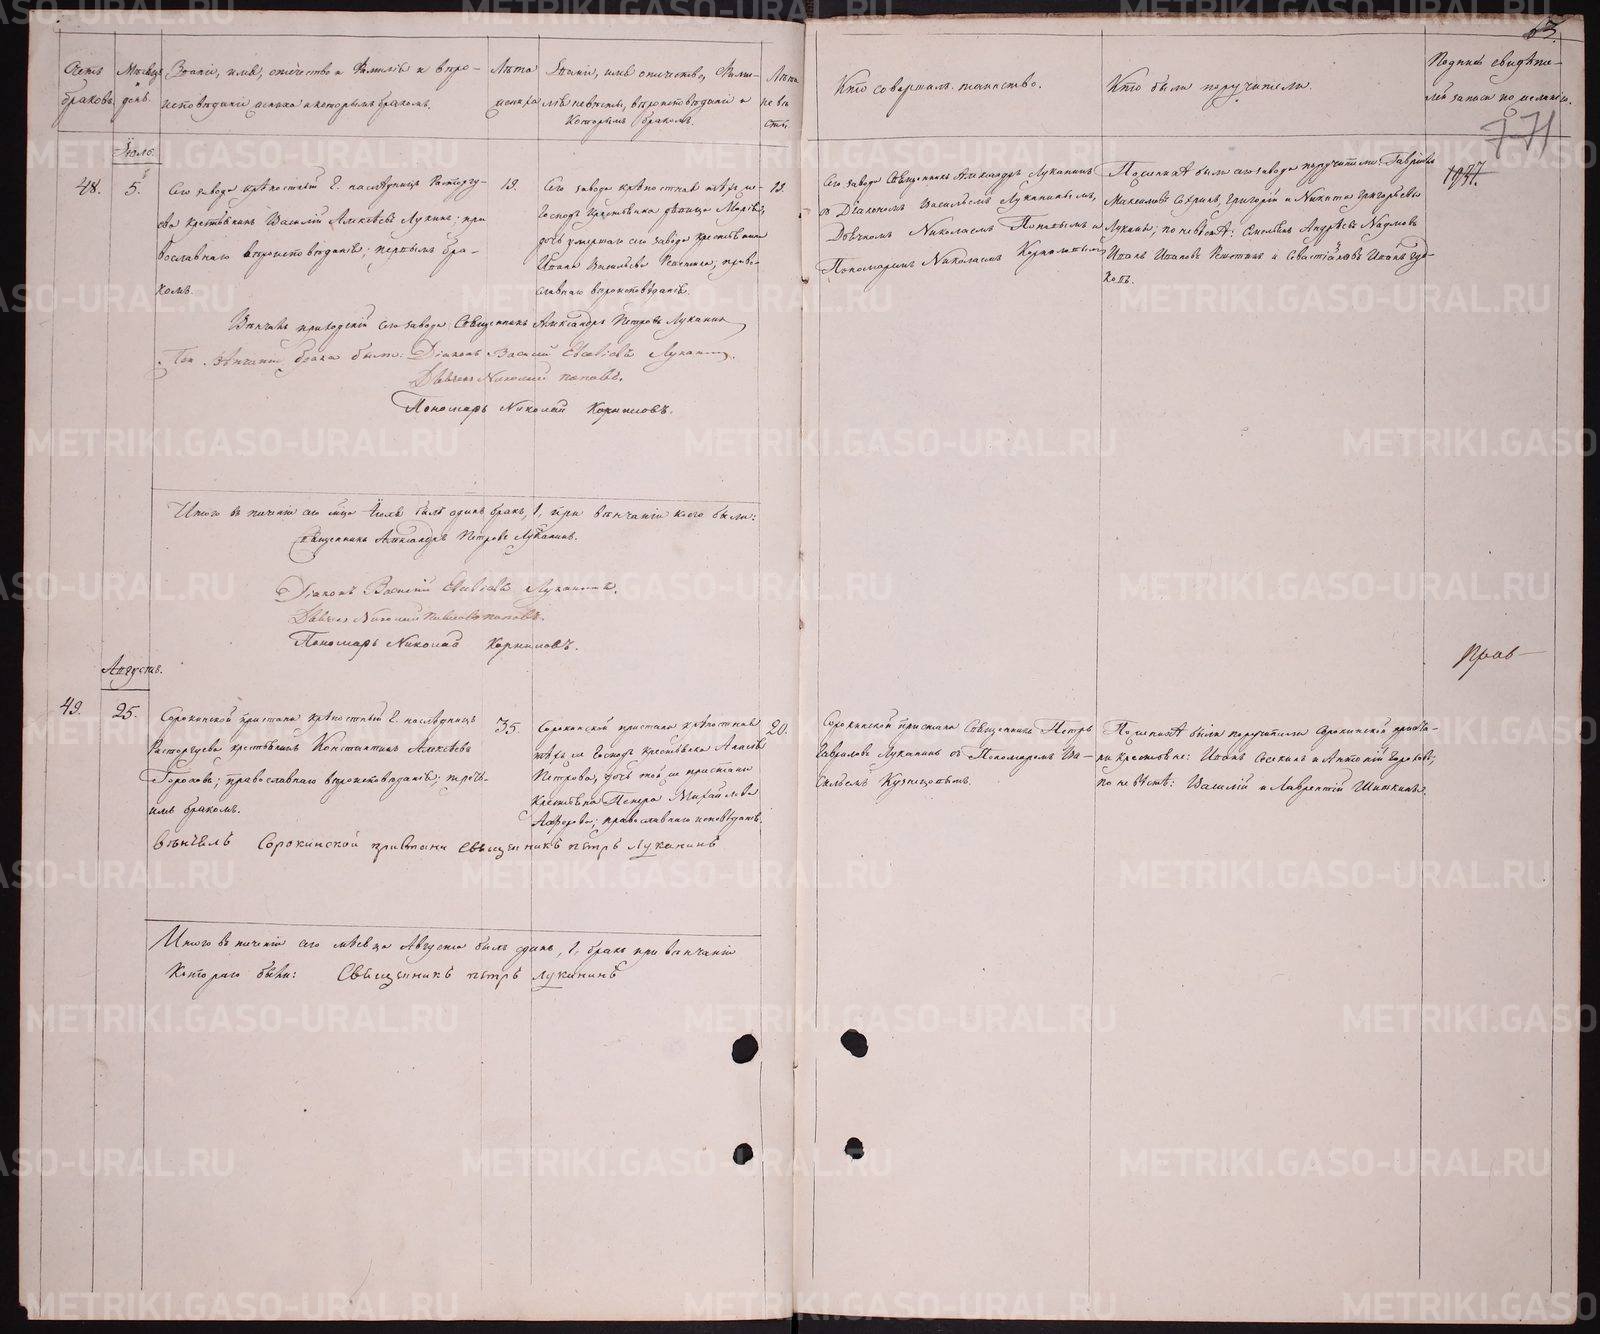 63.
771
1937.
Счетъ браковъ.
Мѣсяцъ и день.
Званіе, имя, отчество и Фамилія и вѣро-
исповѣданіе жениха и которымъ бракомъ.
Лѣта
жениха
Званіе, имя отчество, Фами-
лія невѣсты, вѣроисповѣданіе и
Которымъ бракомъ.
Лѣта
невѣ
сты.
Кто совершалъ таинство.
Кто были поручители.
Подпись свидѣте-
лей записи по желанію.
Іюль.
48.
5.
Сего завода крѣпостный Г. наслѣдницъ Расторгу-
ева крестьянинъ Василій Алексѣевъ Лукинъ; пра
вославнаго вѣроисповѣданія; первымъ бра-
комъ.
19.
Сего завода крѣпостная тѣхъ же
Господъ крестьянка дѣвица Марія,
дочь умершаго сего завода крестьянина
Ивана Васильева; право-
славнаго вѣроисповѣданія.
19
Сего завода Священникъ Александръ Луканинъ
съ Діакономъ Васильемъ Луканинымъ,
Дьячкомъ Николаемъ Поповымъ и
Пономаремъ Николаемъ Корниловымъ
По женихѣ были сего завода поручители: Гаврило
Григорій и Никита Григорьевы
Лукины; по невѣстѣ: Андрѣевъ Наумовъ
Иванъ Ивановъ и Севастіянъ Ивановъ
Вѣнчалъ приходскій сего завода Священникъ Александръ Петровъ Луканинъ
При вѣнчаніи брака были: Діаконъ Василій Евсевіевъ Луканинъ.
Дьячекъ Николай Поповъ.
Пономарь Николай Корниловъ.
Итого въ теченіи сего мѣсяца Іюля былъ одинъ бракъ, 1, при вѣнчаніи коего были:
Священникъ Александръ Петровъ Луканинъ.
Діаконъ Василій Евсевіевъ Луканинъ.
Дьячекъ Николай Павловъ Поповъ.
Пономарь Николай Корниловъ.
Августъ.
49.
25.
Сорокинской пристани крѣпостный Г. наслѣдницъ
Расторгуева крестьянинъ Константинъ Алексѣевъ
Гороховъ; православнаго вѣроисповѣданія; треть-
имъ бракомъ.
35.
Сорокинской пристани крѣпостная
тѣхъ же Господъ крестьянка
Петрова, дочь той же пристани
крестьянина Петра Михайлова
православнаго исповѣданія.
20.
Сорокинской пристани Священникъ Петръ
Гавриловъ Луканинъ съ Пономаремъ Ва-
сильемъ Кузнецовымъ.
По женихѣ были поручители Сорокинской приста-
ни крестьяне: Иванъ и Антоній Гороховы;
по невѣстѣ: Василій и Лаврентій Шиткины.
Прав-
Вѣнчалъ Сорокинской пристани Священникъ Петръ Луканинъ
Итого въ теченіи сего мѣсяца Августа былъ одинъ, 1, бракъ при вѣнчаніи
Котораго были: Священникъ Петръ Луканинъ
METRIKI.GASO-URAL.RU